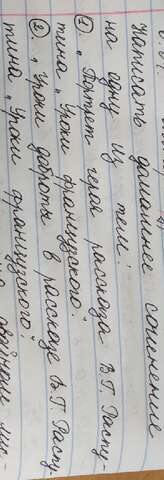 Написать домашнее сочинение
на одну из тем:
① „Портрет героя рассказа В.Г. Распу-
тина „Уроки французского"
② „Уроки доброты в рассказе В.Г. Распу
тина „Уроки французского".